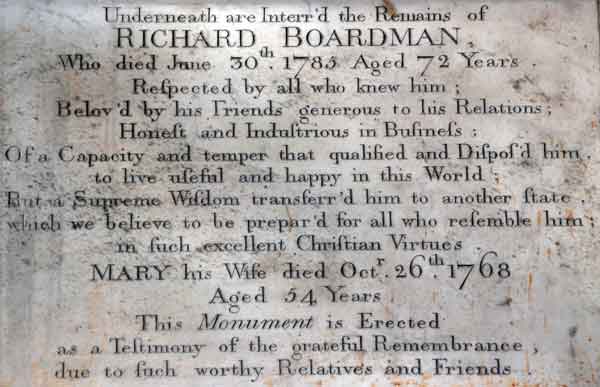 Underneath are Interr'd the Remains of
RICHARD BOARDMAN,
Who died June 30th. 1785 Aged 72 Years.
Reſpected by all who knew him;
Belov'd by his Friends generous to his Relations;
Honeſt and Induſtrious in Buſineſs:
Of a Capacity and temper that qualified and Diſpoſ'd him,
to live uſeful and happy in this World;
But a Supreme Wiſdom transferr'd him to another ſtate,
which we believe to be prepar'd for all who reſemble him;
in ſuch excellent Chriſtian Virtues.
MARY his Wife died Octr. 26th. 1768
Aged 54 Years
This Monument is Erected
as a Teſtimony of the grateful Remembrance,
due to ſuch worthy Relatives and Friends.